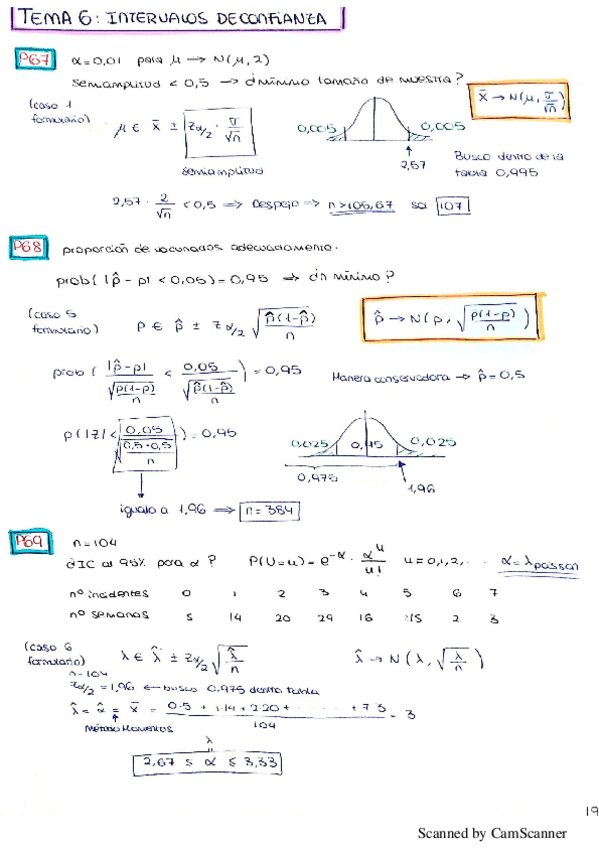 TEMA 6: INTERVALOS DE CONFIANZA
P67 α=0,01 para μ → N(μ,2)
Semiamplitud < 0,5 → ¿mínimo tamaño de muestra?
(caso 1 formulario) μ ∈ x̄ ± Zα/2 · σ/√n
semiamplitud
0,005 0,005
2,57
x̄ → N(μ, σ/√n)
Busco dentro de la tabla 0,995
2,57 · 2/√n < 0,5 ⇒ Despejo ⇒ n > 105,67 sea 107
P68 proporción de vacunados adecuadamente.
prob(|p̂ - p| < 0,05) = 0,95 ⇒ ¿n mínimo?
(caso 5 formulario) p ∈ p̂ ± Zα/2 √(p̂(1-p̂)/n)
p̂ → N(p, √(p(1-p)/n))
prob( |p̂-p| / √(p(1-p)/n) < 0,05 / √(p̂(1-p̂)/n) ) = 0,95
Manera conservadora → p̂ = 0,5
p( |Z| < 0,05 / √(0,5·0,5/n) ) = 0,95
0,025 0,025
0,975
1,96
igualo a 1,96 ⇒ n = 384
P69 n=104
¿IC al 95% para α? P(U=u) = e^-α · α^u/u! u=0,1,2,... α = λ poisson
nº incidentes 0 1 2 3 4 5 6 7
nº semanas 5 14 20 29 16 15 2 3
(caso 6 formulario) λ ∈ λ̂ ± Zα/2 √(λ̂/n) λ̂ → N(λ, √(λ/n))
n=104
Zα/2 = 1,96 ← busco 0,975 dentro tabla
λ̂ = α̂ = x̄ = (0·5 + 1·14 + 2·20 + ..... + 7·3)/104 = 3
Método Momentos
λ
2,67 ≤ α ≤ 3,33
19
Scanned by CamScanner